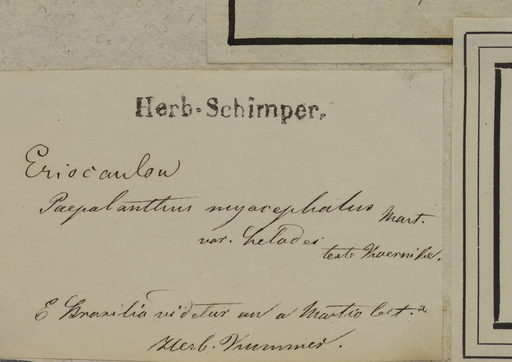 Herb. Schimper.
Eriocaulon
Paepalanthus myocephalus Mart.
var. helodes
teste Koernike.
E Brasilia videtur an a Martio lect.
Herb. Krummer.